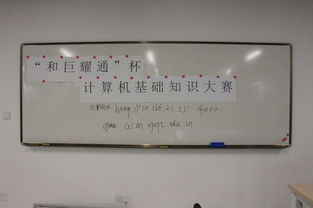 “和巨耀通”杯
计算机基础知识大赛
http://10.166.21.55 4000
acm njupt edu cn